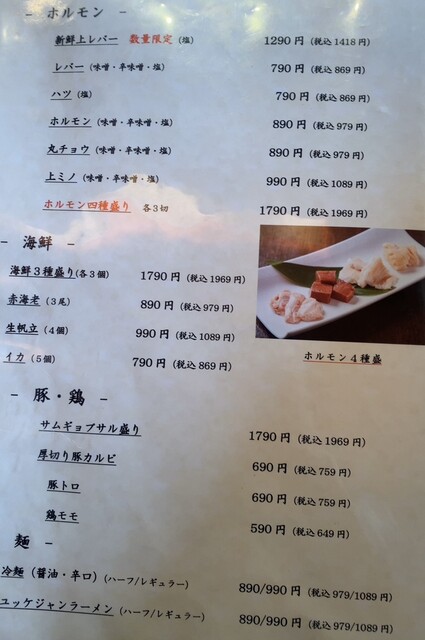 - ホルモン -
新鮮上レバー 数量限定 (塩) 1290円 (税込1418円)
レバー (味噌・辛味噌・塩) 790円 (税込869円)
ハツ (塩) 790円 (税込869円)
ホルモン (味噌・辛味噌・塩) 890円 (税込979円)
丸チョウ (味噌・辛味噌・塩) 890円 (税込979円)
上ミノ (味噌・辛味噌・塩) 990円 (税込1089円)
ホルモン四種盛り 各3切 1790円 (税込1969円)
- 海鮮 -
海鮮3種盛り(各3個) 1790円 (税込1969円)
赤海老 (3尾) 890円 (税込979円)
生帆立 (4個) 990円 (税込1089円)
イカ (5個) 790円 (税込869円)
ホルモン4種盛
- 豚・鶏 -
サムギョプサル盛り 1790円 (税込1969円)
厚切り豚カルビ 690円 (税込759円)
豚トロ 690円 (税込759円)
鶏モモ 590円 (税込649円)
麺 -
冷麺 (醤油・辛口) (ハーフ/レギュラー) 890/990円 (税込979/1089円)
ユッケジャンラーメン (ハーフ/レギュラー) 890/990円 (税込979/1089円)